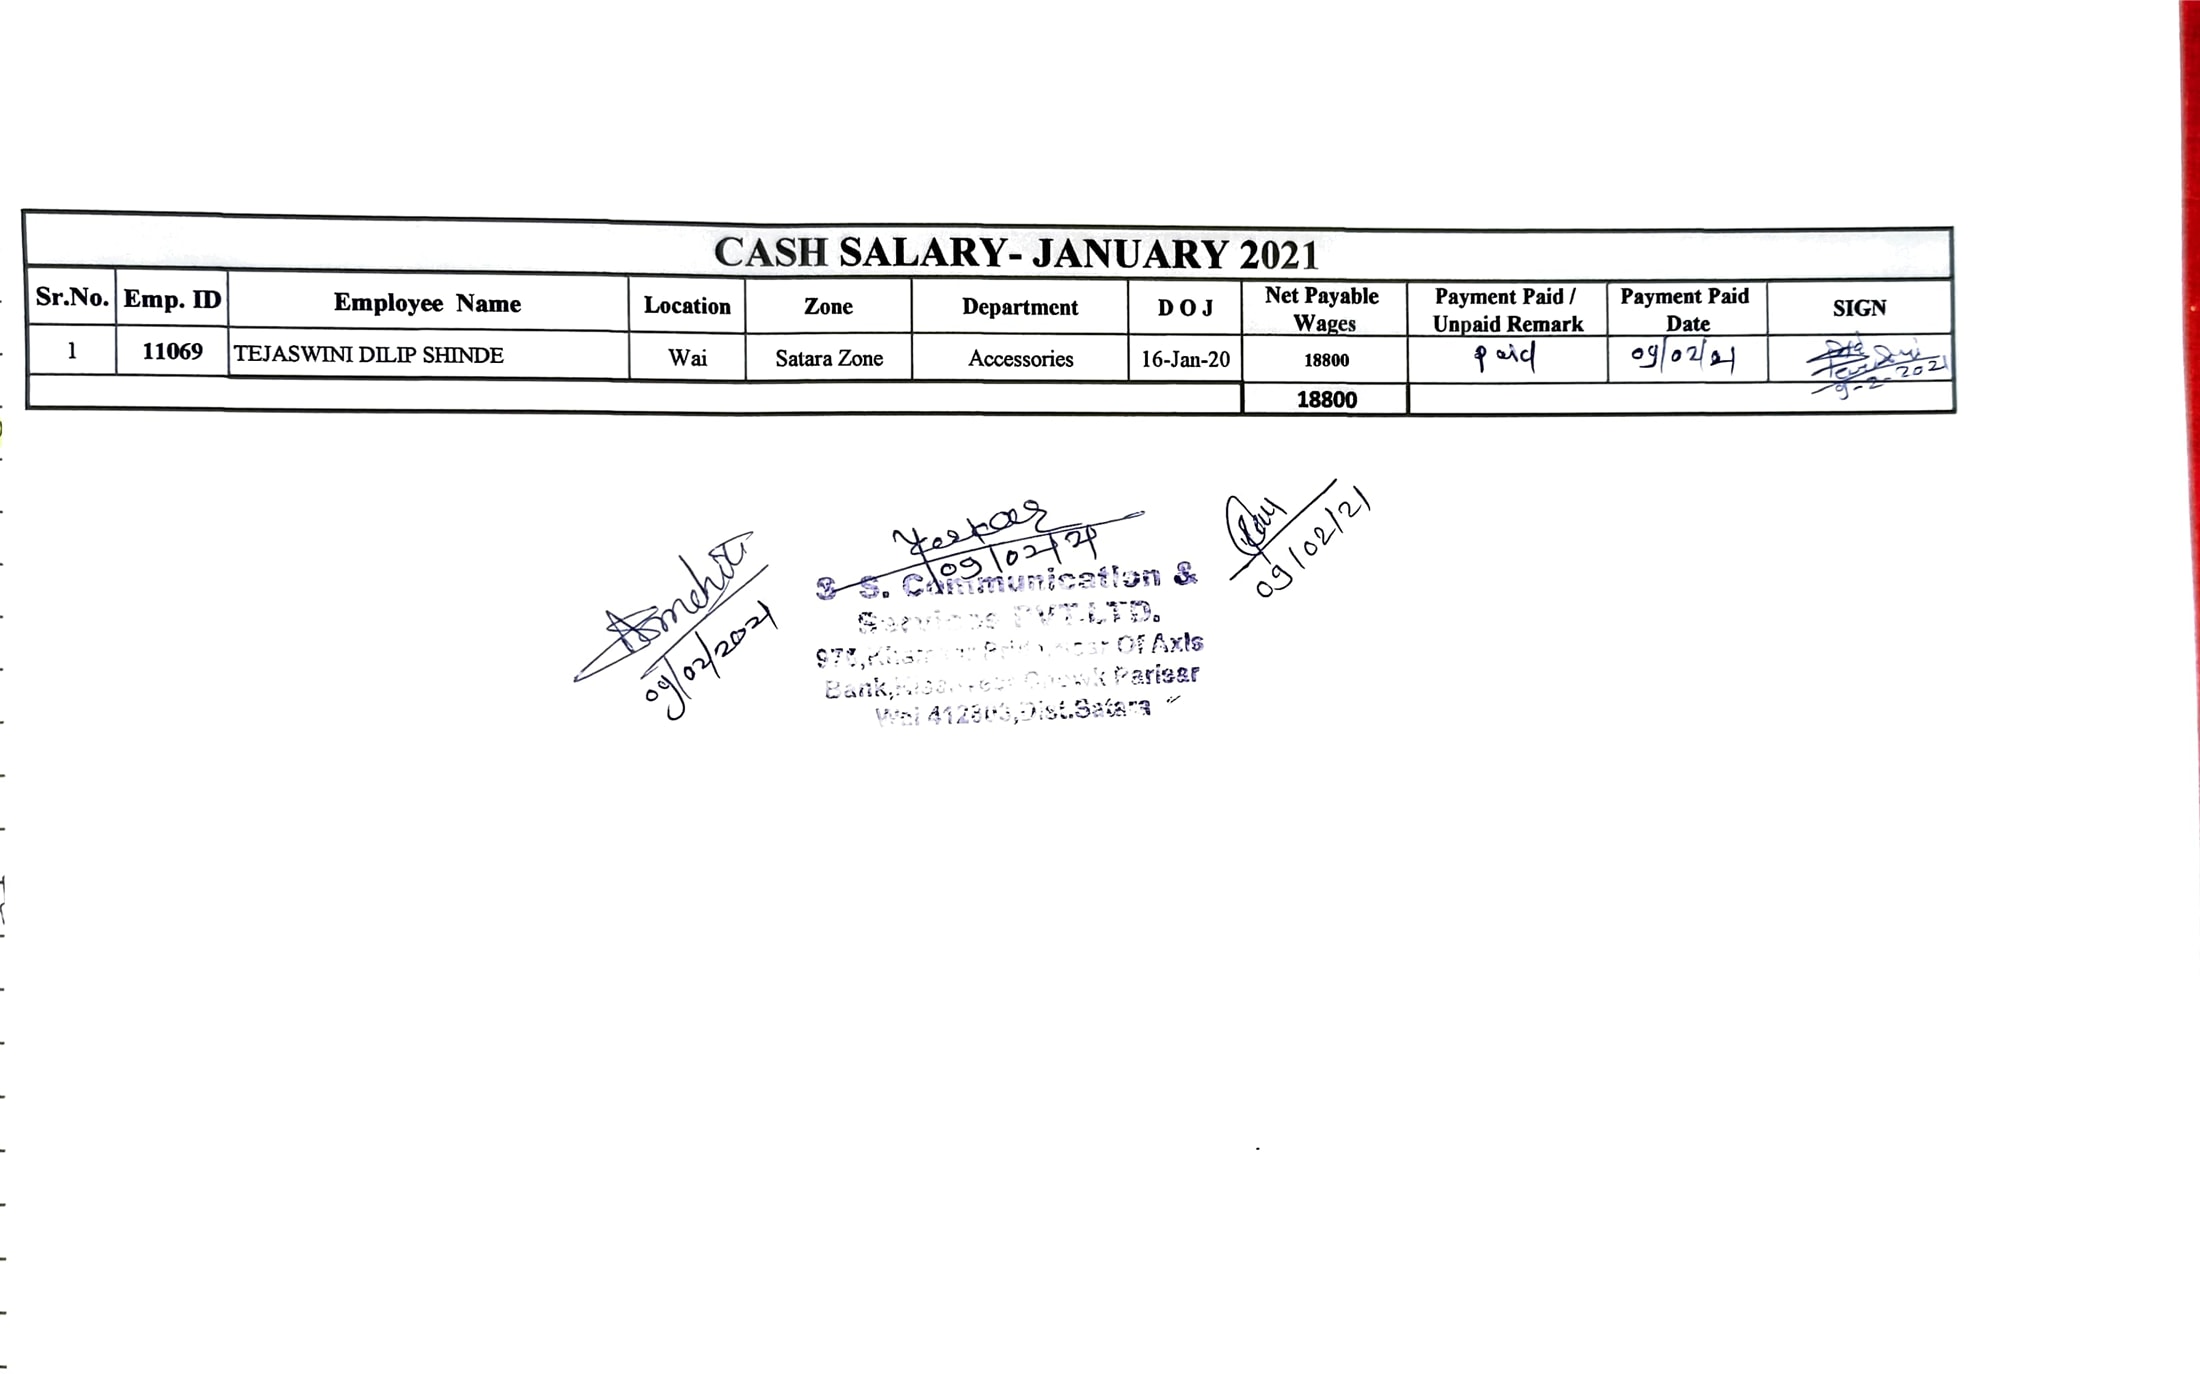 CASH SALARY- JANUARY 2021
Sr.No. Emp. ID Employee Name Location Zone Department D O J Net Payable Wages Payment Paid / Unpaid Remark Payment Paid Date SIGN
1 11069 TEJASWINI DILIP SHINDE Wai Satara Zone Accessories 16-Jan-20 18800 paid 09/02/21
9-2-2021
18800
09/02/21
09/02/21
09/02/2021
S. Communication &
Services PVT.LTD.
Of Axis
Bank, Parisar
Wai 412803,Dist.Satara